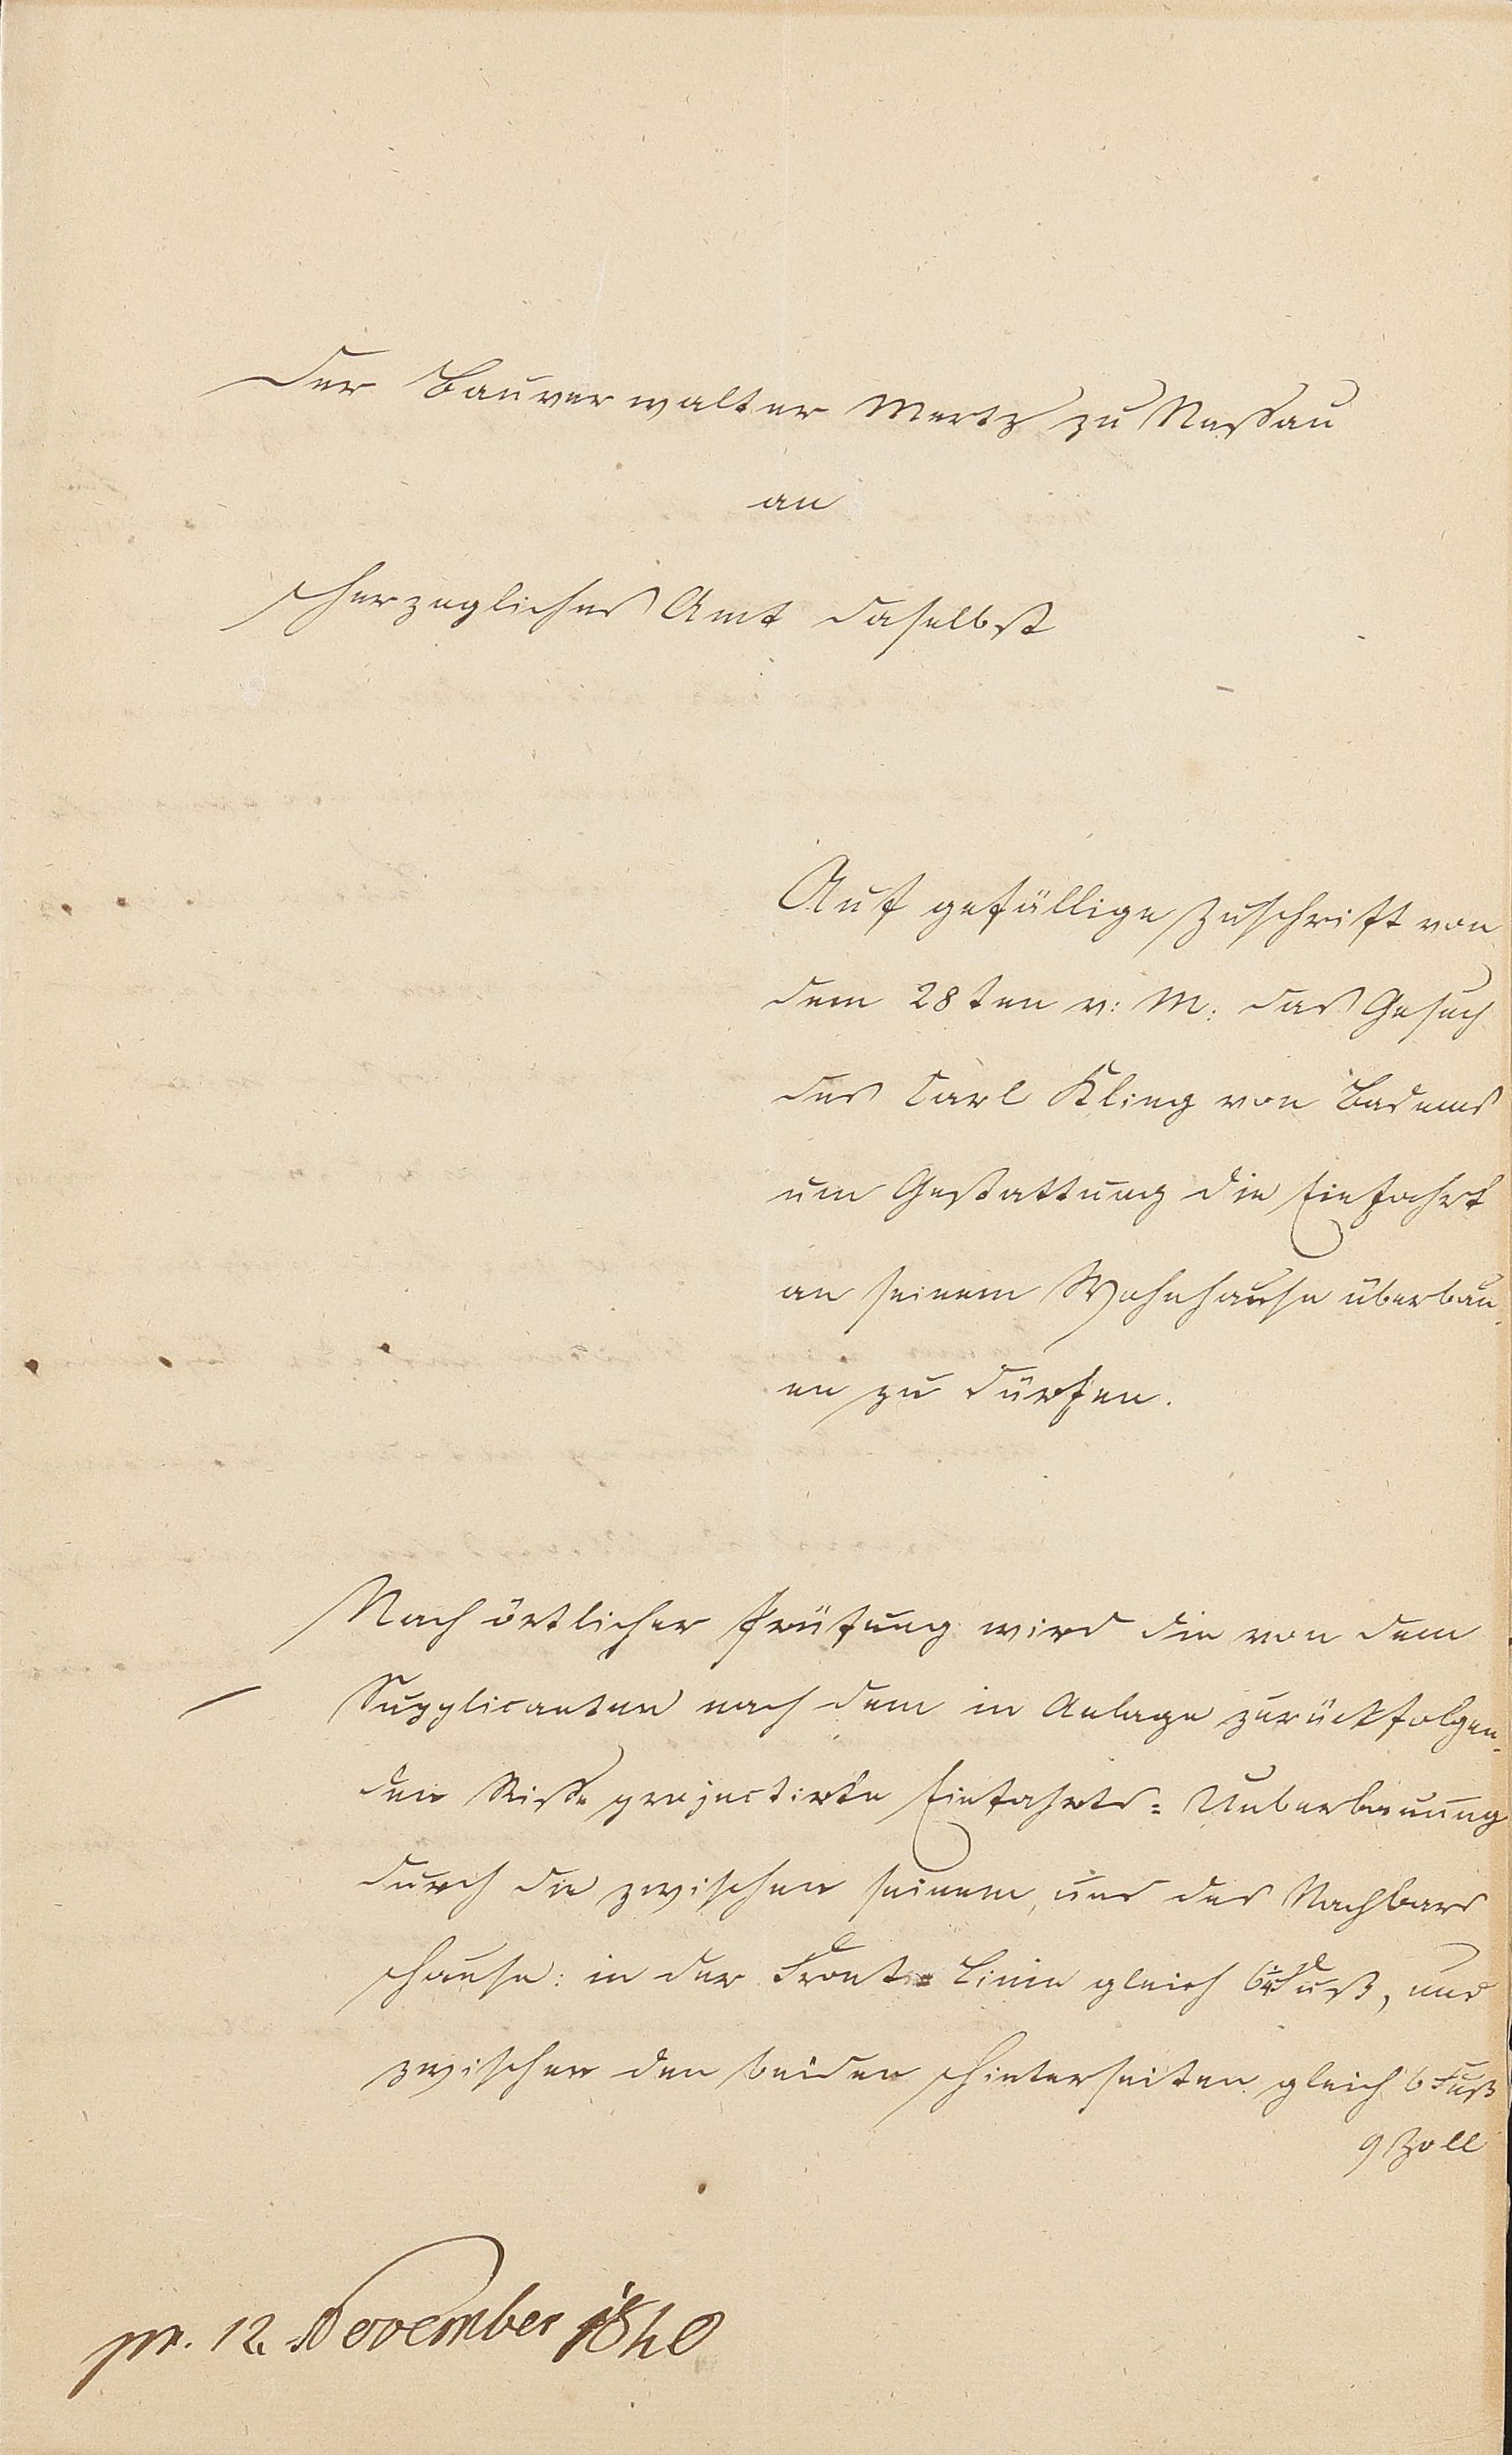 Der Bauverwalter Mertz zu Nassau
an
Herzogliches Amt daselbst
Auf gefällige Zuschrift von
dem 28ten v: M: das Gesuch
des Carl Kling von Badems
um Gestattung die Einfahrt
an seinem Wohnhause überbau-
en zu dürfen.
Nach örtlicher Prüfung wird die von dem
Supplicanten nach dem in Anlage zurückfolgen-
den Risse projectirte Einfahrts= Ueberbauung
durch die zwischen seinem, und des Nachbars
Hause: in der Front= Linie gleich 6¼ Fuß, und
zwischen den beiden Hinterseiten gleich 6 Fuß
9 Zoll
pr. 12. November 1840